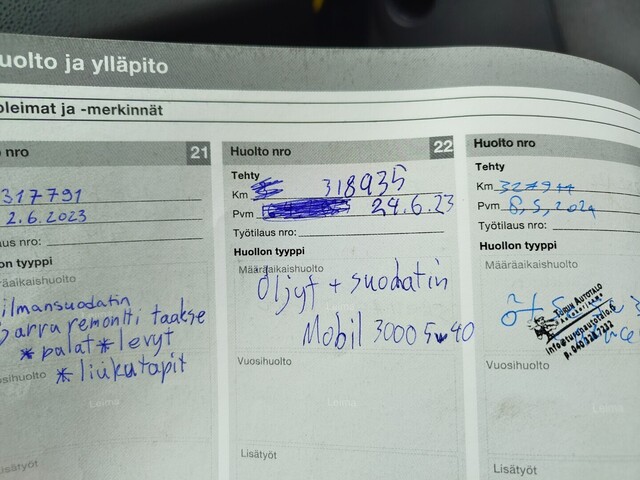 uolto ja ylläpito
oleimat ja -merkinnät
o nro 21
317791
2.6.2023
laus nro:
lon tyyppi
äräaikaishuolto
ilmansuodatin
Jarruremontti taakse
* palat * levyt
* liukutapit
osihuolto
Leima
isätyöt
Huolto nro 22
Tehty
Km 318935
Pvm 24.6.23
Työtilaus nro:
Huollon tyyppi
Määräaikaishuolto
Öljyt + suodatin
Mobil 3000 5w40
Vuosihuolto
Leima
Lisätyöt
Huolto nro
Tehty
Km
Pvm 8,5,2024
Työtilaus nro:
Huollon tyyppi
Määräaikaishuolto
TURUN AUTOTALO
Vuosihuolto
Leima
Lisätyöt